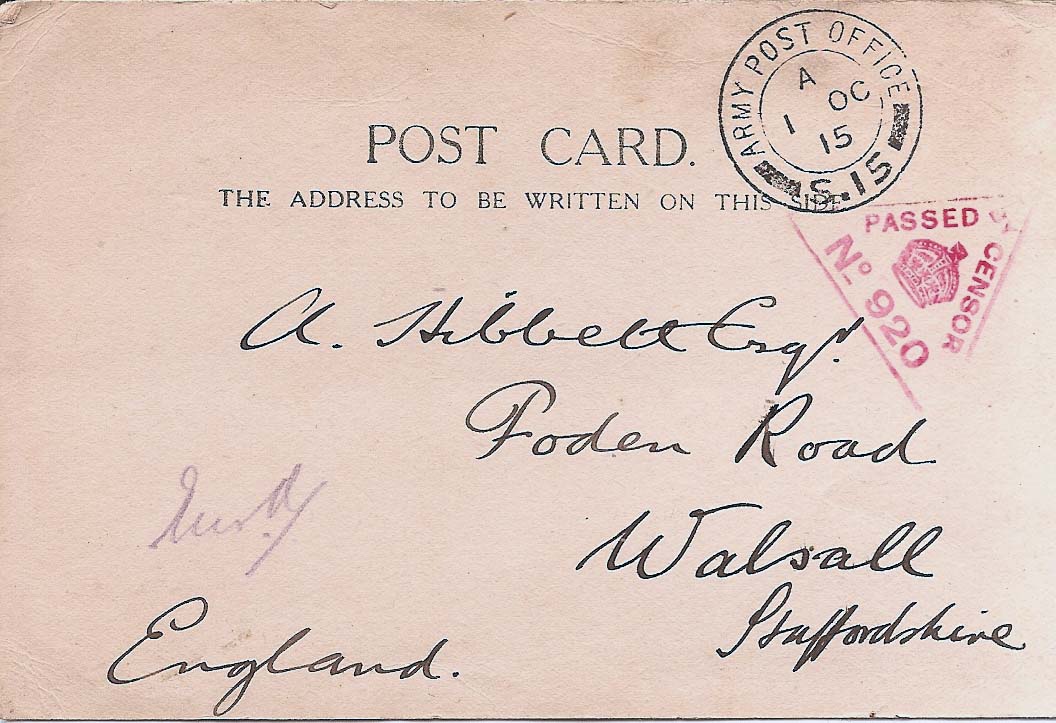 ARMY POST OFFICE
A
1 OC
15
S.15
POST CARD.
THE ADDRESS TO BE WRITTEN ON THIS SIDE
PASSED BY CENSOR
No 920
A. Hibbett Esqr.
Foden Road
Walsall
Staffordshire
England.